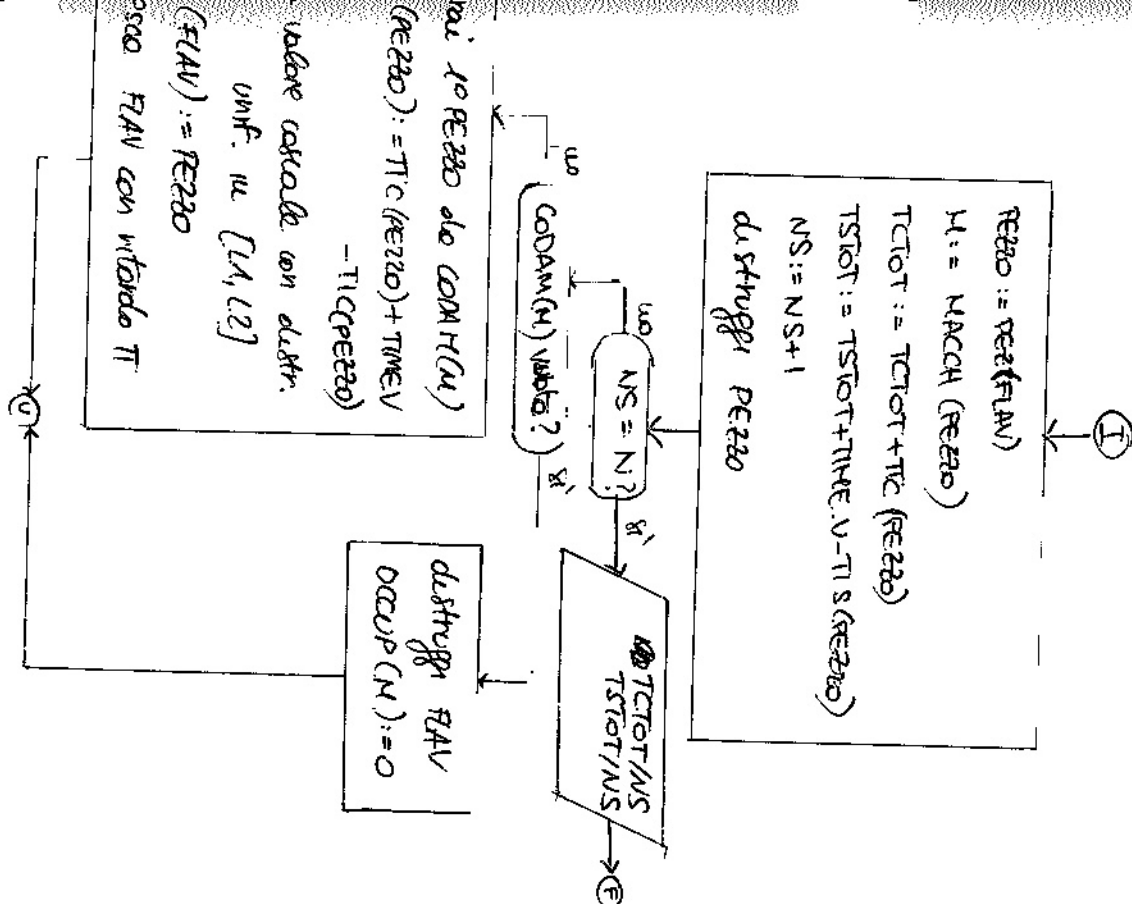 I
PEZZO := PEZ(FLAV)
M := MACCH (PEZZO)
TCTOT := TCTOT + TIC (PEZZO)
TSTOT := TSTOT + TIME.V - TIS (PEZZO)
NS := NS + 1
distruggi PEZZO
NS = N?
no
sì
TCTOT/NS
TSTOT/NS
F
CODAM(M) vuota?
no
sì
distruggi FLAV
OCCUP (M) := 0
1° PEZZO da CODAM(M)
(PEZZO) := TIC (PEZZO) + TIMEV
- TIC(PEZZO)
valore casuale con distr.
unif. in [L1, L2]
(FLAV) := PEZZO
FLAV con ritardo TT
U